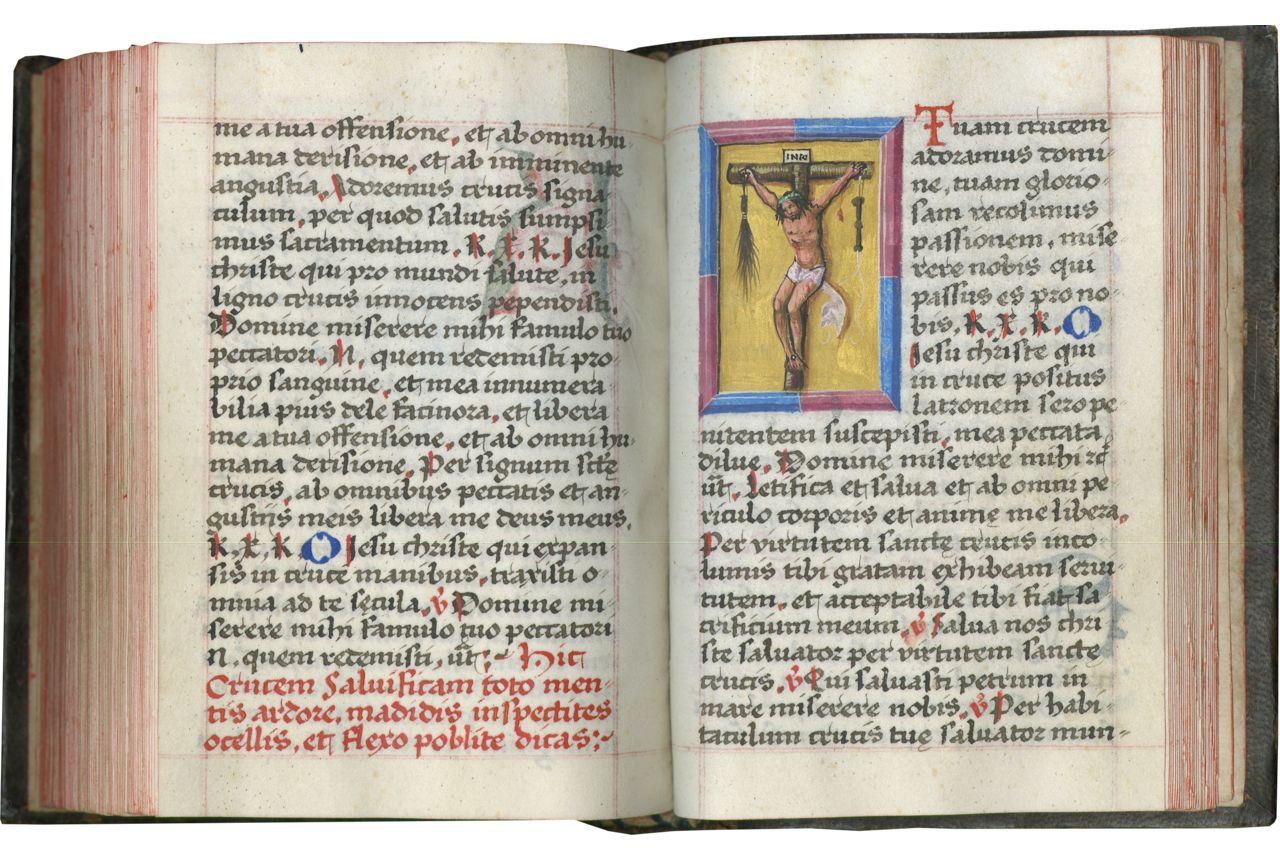 me a tua offensione, et ab omni hu-
mana derisione, et ab imminente
angustia. Adoremus crucis signa-
culum, per quod salutis sumpsi-
mus sacramentum. K. X. K. Jesu
christe qui pro mundi salute, in
ligno crucis innocens pependisti.
Domine miserere mihi famulo tuo
peccatori. N. quem redemisti pro-
prio sanguine, et mea innumera-
bilia pius dele facinora, et libera
me a tua offensione, et ab omni hu-
mana derisione. Per signum sctę
crucis, ab omnibus peccatis et an-
gustiis meis libera me deus meus.
K. X. K. O Jesu christe qui expan-
sis in cruce manibus, traxisti o-
mnia ad te sęcula. V Domine mi-
serere mihi famulo tuo peccatori
N. quem redemisti, ut:~ Hic
Crucem Saluificam toto men-
tis ardore, madidis inspectites
ocellis, et flexo poblite dicas:~
INRI
Tuam crucem
adoramus domi-
ne, tuam glorio-
sam recolimus
passionem, mise-
rere nobis qui
passus es pro no-
bis. K. X. K. O
Jesu christe qui
in cruce positus
latronem sero pe-
nitentem suscepisti, mea peccata
dilue. Domine miserere mihi zc
ut. Letifica et salua et ab omni pe-
riculo corporis et animę me libera.
Per virtutem sanctę crucis inco-
lumis tibi gratam exhibeam serui-
tutem, et acceptabile tibi fiat sa-
crificium meum. V Salua nos chri-
ste saluator per virtutem sanctę
crucis. V Qui saluasti petrum in
mare miserere nobis. V Per habi-
taculum crucis tuę saluator mun-